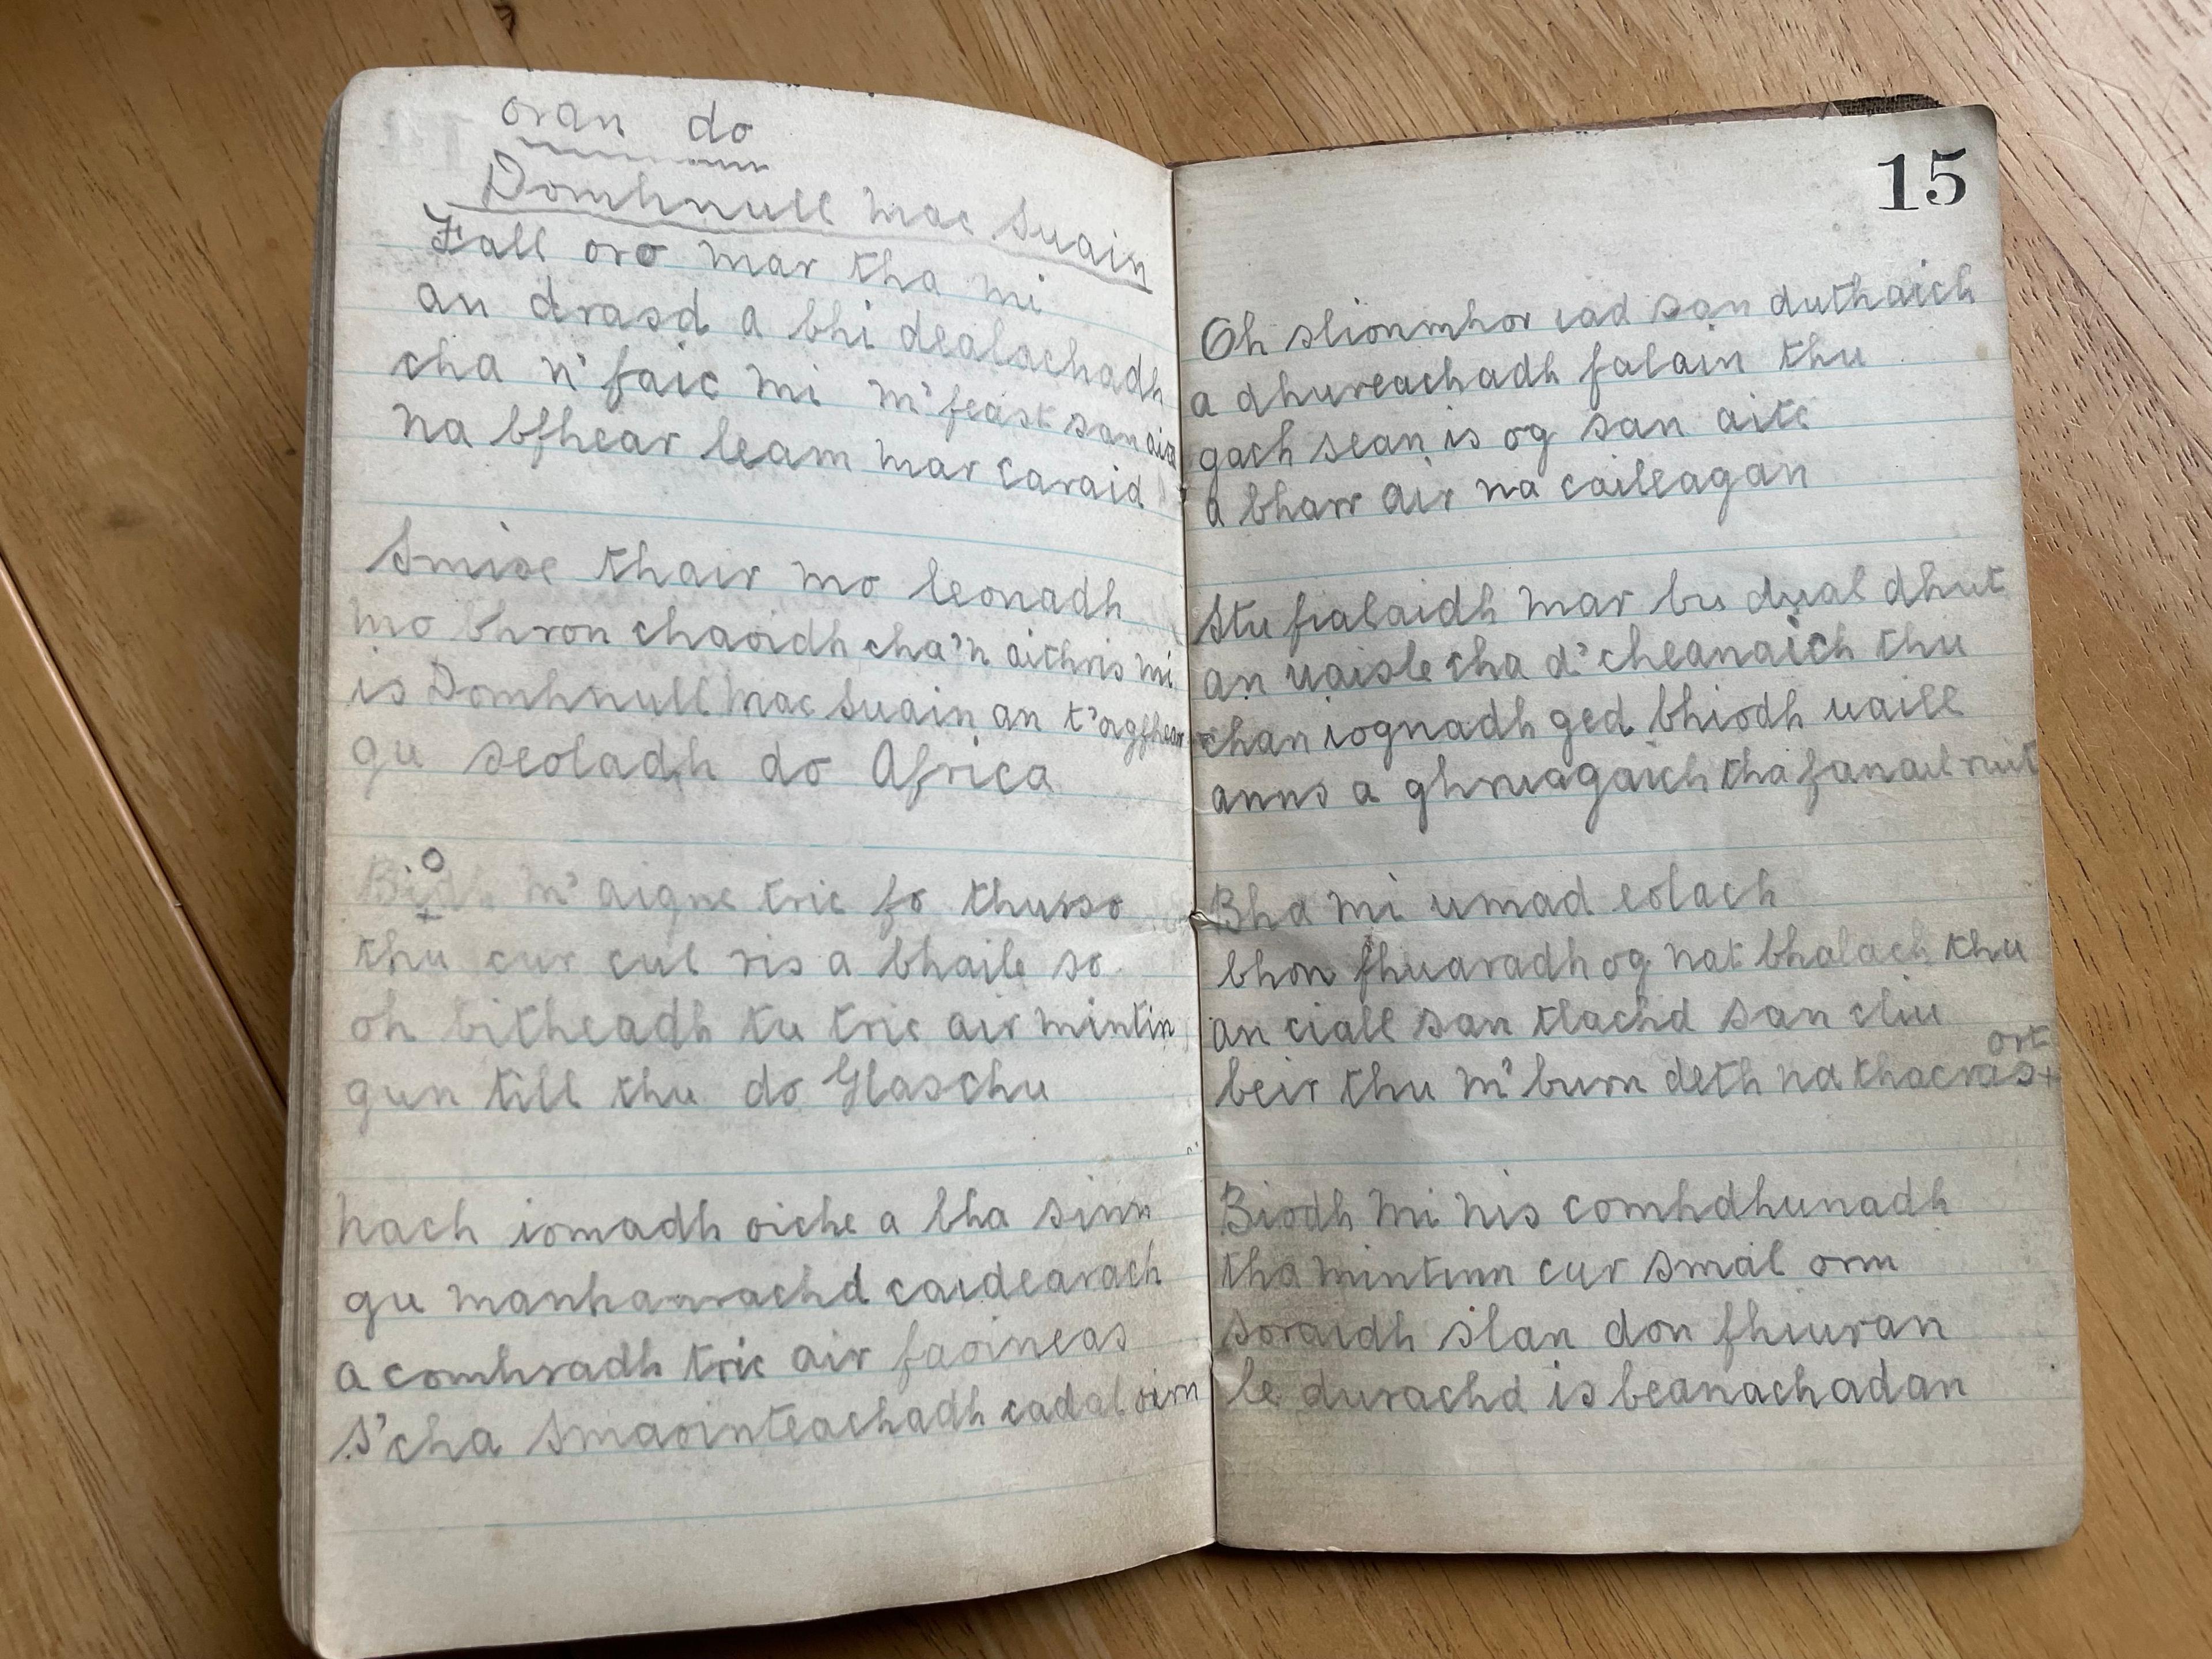 oran do
Domhnull mac Suain
Fall oro mar tha mi
an drasd a bhi dealachadh
cha n' faic mi m' feast san
na bfhear leam mar caraid
Smise thair mo leonadh
mo bhron chaoidh cha'n aithris mi
is Domhnull mac Suain an t'ogfhear
gu seoladh do Africa
m' aigne tric fo thurso
thu cur cul ris a bhaile so
oh bitheadh tu tric air mintin
gun till thu do Glaschu
nach iomadh oiche a bha sinn
gu caidearach
a comhradh tric air faoineas
s'cha smaointeachadh cadal oirn
15
Oh slionmhor iad san duthaich
a dhureachadh falain thu
gach sean is og san aite
a bharr air na caileagan
Stu fialaidh mar bu dual dhut
an uaisle cha d' cheanaich thu
chan iognadh ged bhiodh uaill
anns a ghruagaich tha fanail ruit
Bha mi umad eolach
bhon fhuaradh og nat bhalach thu
an ciall san tlachd san cliu
ort
beir thu m' burn deth na
Biodh mi nis comhdhunadh
tha mintinn cur smal orm
soraidh slan don fhiuran
le durachd is beanachadan